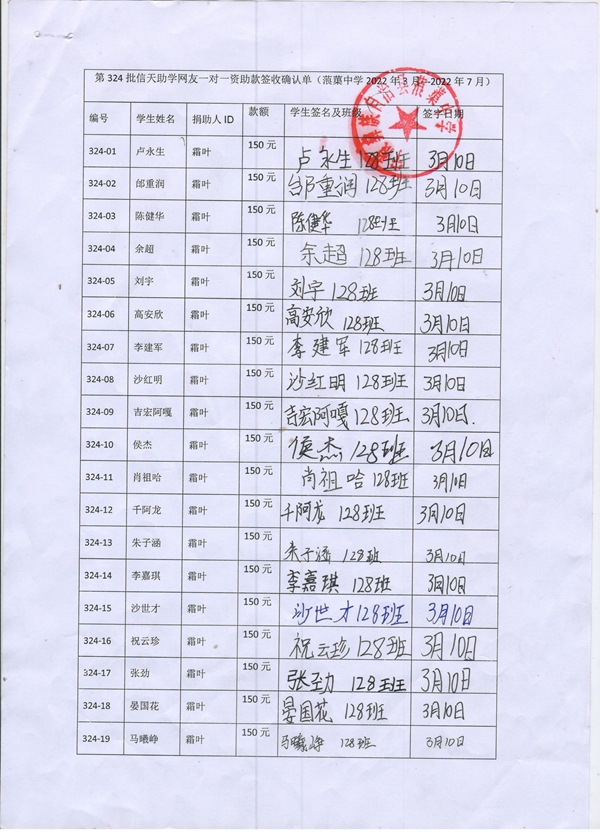 第 324 批信天助学网友一对一资助款签收确认单（菰蕖中学 2022 年 3 月--2022 年 7 月）
编号 学生姓名 捐助人 ID 款额 学生签名及班级 签字日期
324-01 卢永生 霜叶 150 元 卢永生 128班 3月10日
324-02 邰重润 霜叶 150 元 邰重润 128班 3月10日
324-03 陈健华 霜叶 150 元 陈健华 128班 3月10日
324-04 余超 霜叶 150 元 余超 128班 3月10日
324-05 刘宇 霜叶 150 元 刘宇 128班 3月10日
324-06 高安欣 霜叶 150 元 高安欣 128班 3月10日
324-07 李建军 霜叶 150 元 李建军 128班 3月10日
324-08 沙红明 霜叶 150 元 沙红明 128班 3月10日
324-09 吉宏阿嘎 霜叶 150 元 吉宏阿嘎 128班 3月10日.
324-10 侯杰 霜叶 150 元 侯杰 128班 3月10日
324-11 肖祖哈 霜叶 150 元 肖祖哈 128班 3月10日
324-12 千阿龙 霜叶 150 元 千阿龙 128班 3月10日
324-13 朱子涵 霜叶 150 元 朱子涵 128班 3月10日
324-14 李嘉琪 霜叶 150 元 李嘉琪 128班 3月10日
324-15 沙世才 霜叶 150 元 沙世才 128班 3月10日
324-16 祝云珍 霜叶 150 元 祝云珍 128班 3月10日
324-17 张劲 霜叶 150 元 张劲 128班 3月10日
324-18 晏国花 霜叶 150 元 晏国花 128班 3月10日
324-19 马曦峥 霜叶 150 元 马曦峥 128班 3月10日